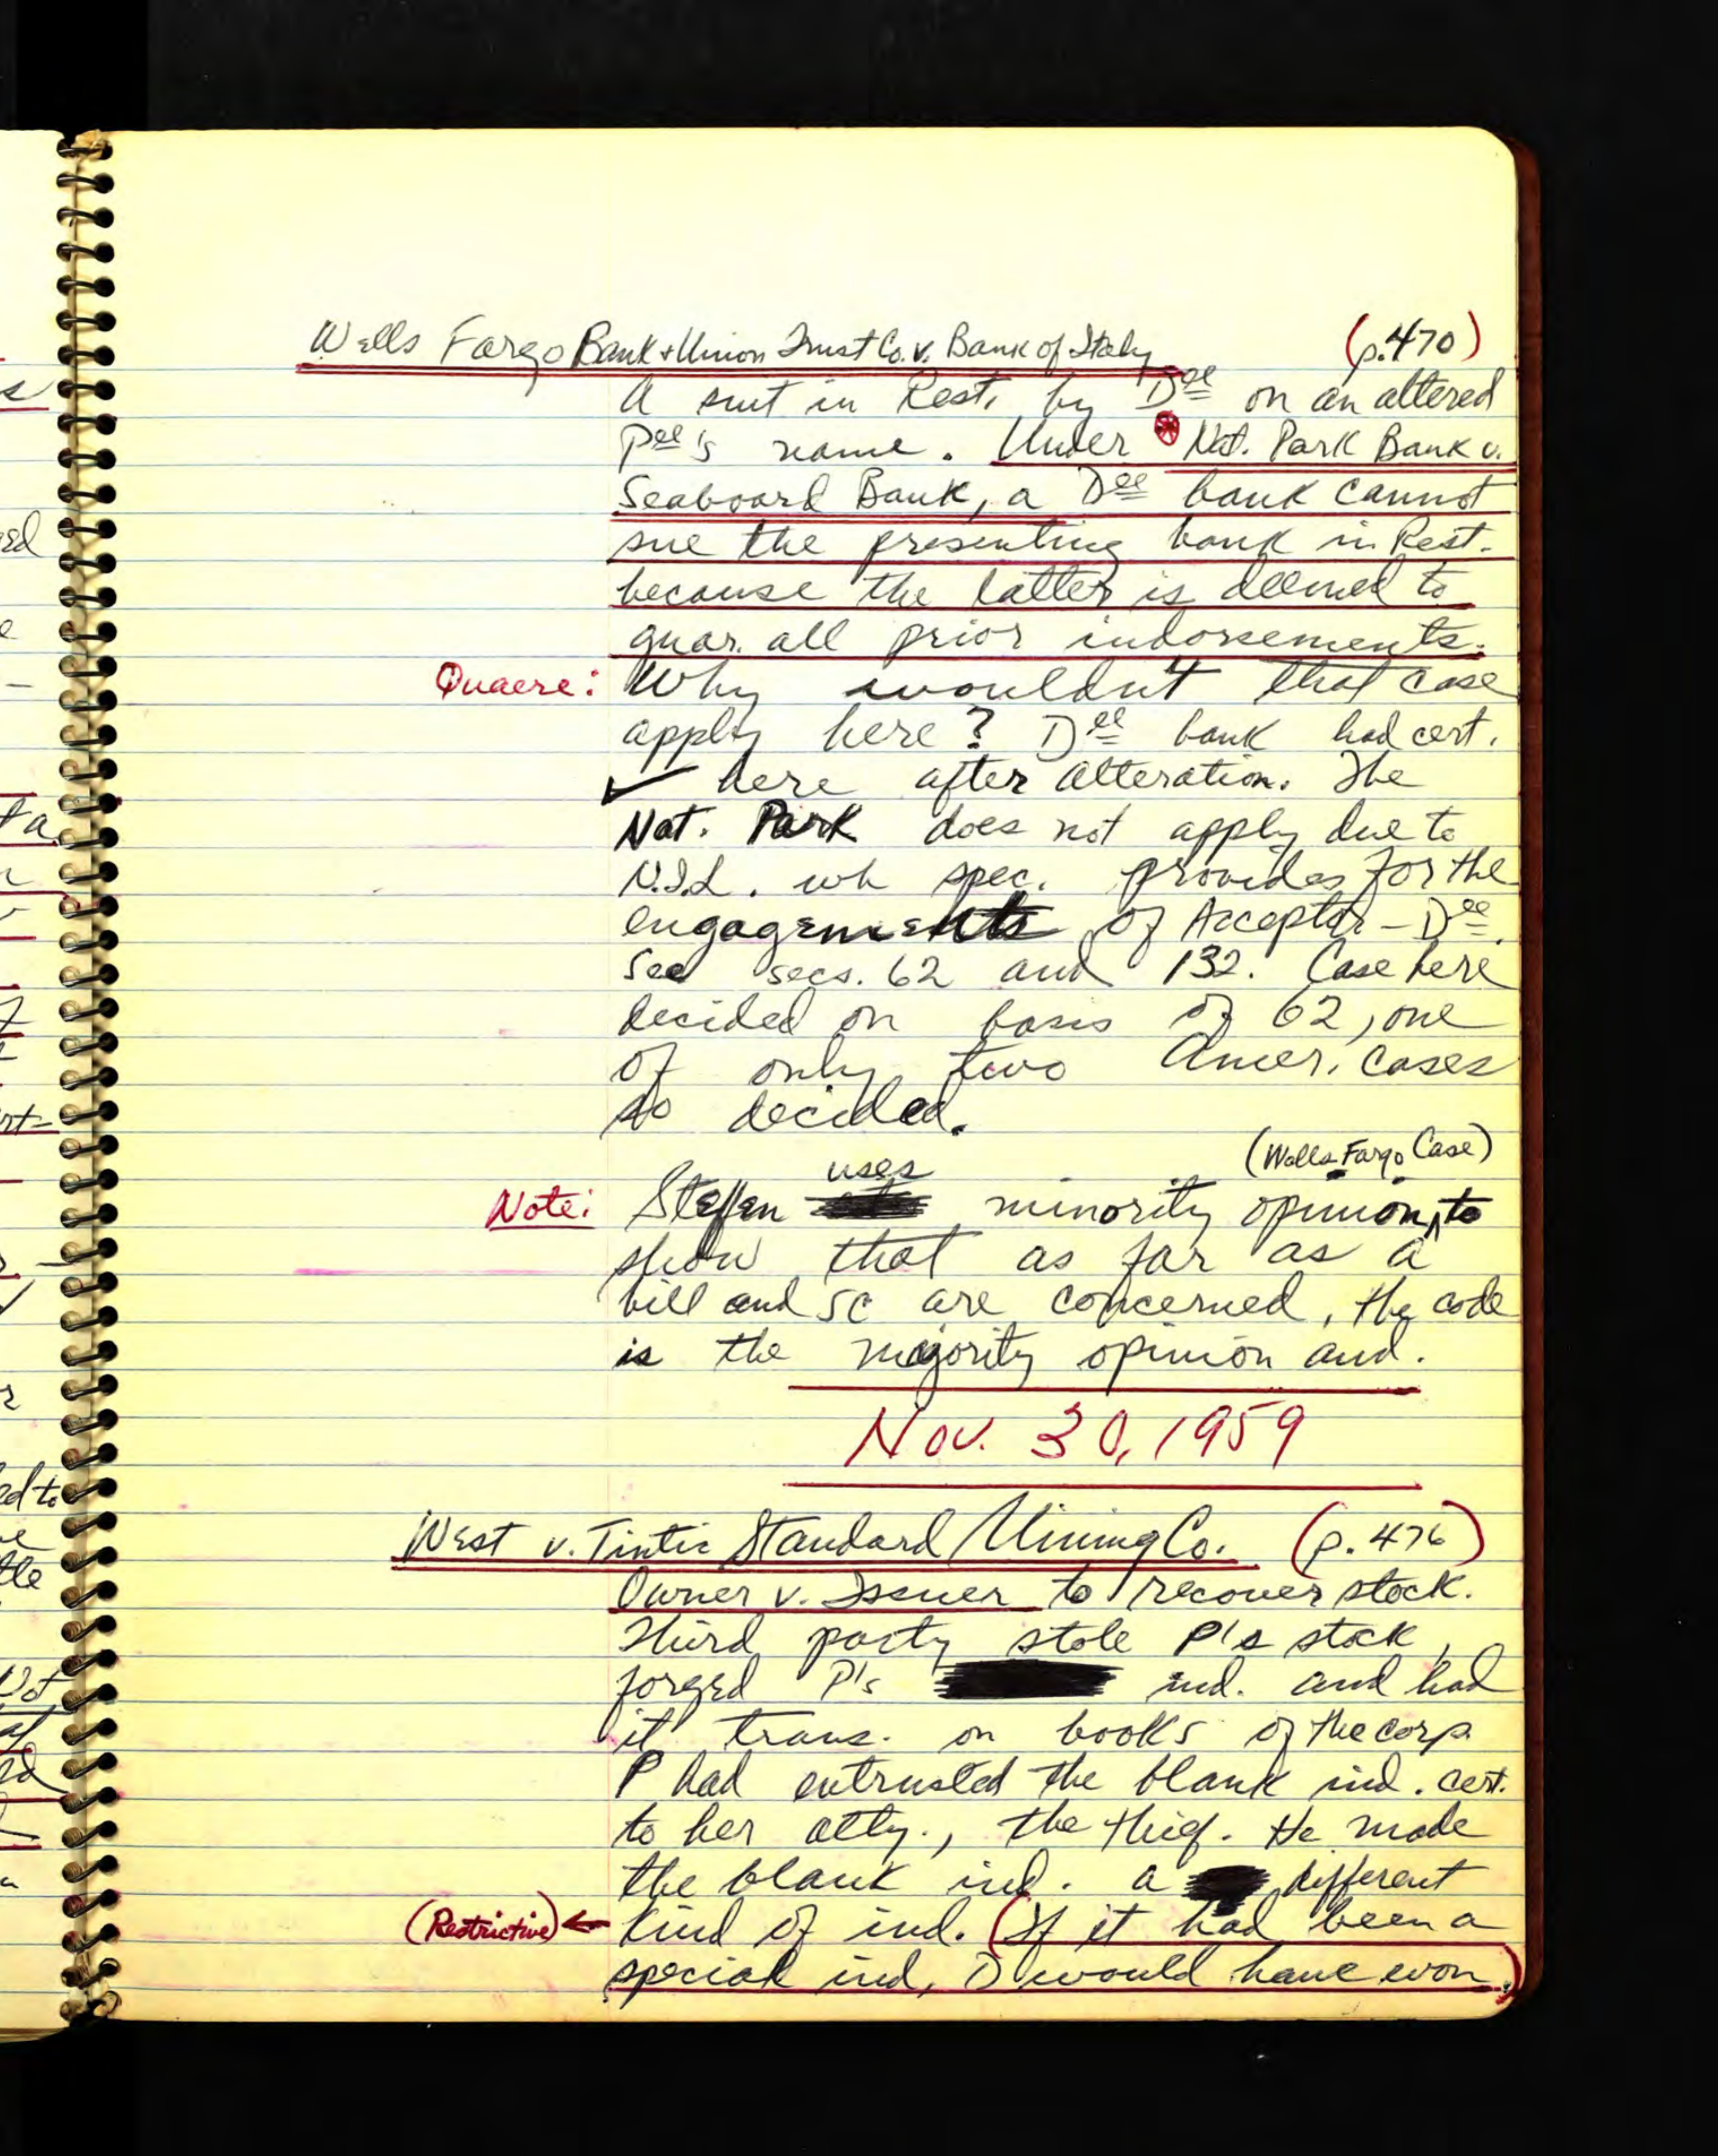 Wells Fargo Bank & Union Trust Co. v. Bank of Italy (p. 470)
A suit in Rest. by Dee on an altered
Pee's name. Under Nat. Park Bank v.
Seaboard Bank, a Dee bank cannot
sue the presenting bank in Rest.
because the latter is deemed to
guar. all prior indorsements.
Quaere: Why wouldn't that case
apply here? Dee bank had cert.
✓ here after alteration. The
Nat. Park does not apply due to
N.I.L. wh spec. provides for the
engagements of Acceptor - Dee.
See secs. 62 and 132. Case here
decided on basis of 62, one
of only two Amer. cases
so decided.
(Wells Fargo Case)
Note: Steffen uses minority opinion, to
show that as far as a
bill and sc are concerned, the code
is the majority opinion and.
Nov. 30, 1959
West v. Tintic Standard Mining Co. (p. 476)
Owner v. Issuer to recover stock.
Third party stole P's stock,
forged P's ind. and had
it trans. on books of the corp.
P had entrusted the blank ind. cert.
to her atty., the thief. He made
the blank ind. a different
(Restrictive) ← kind of ind. (If it had been a
special ind, D would have won.)
ed
ta
ed to
tle
Not
ed